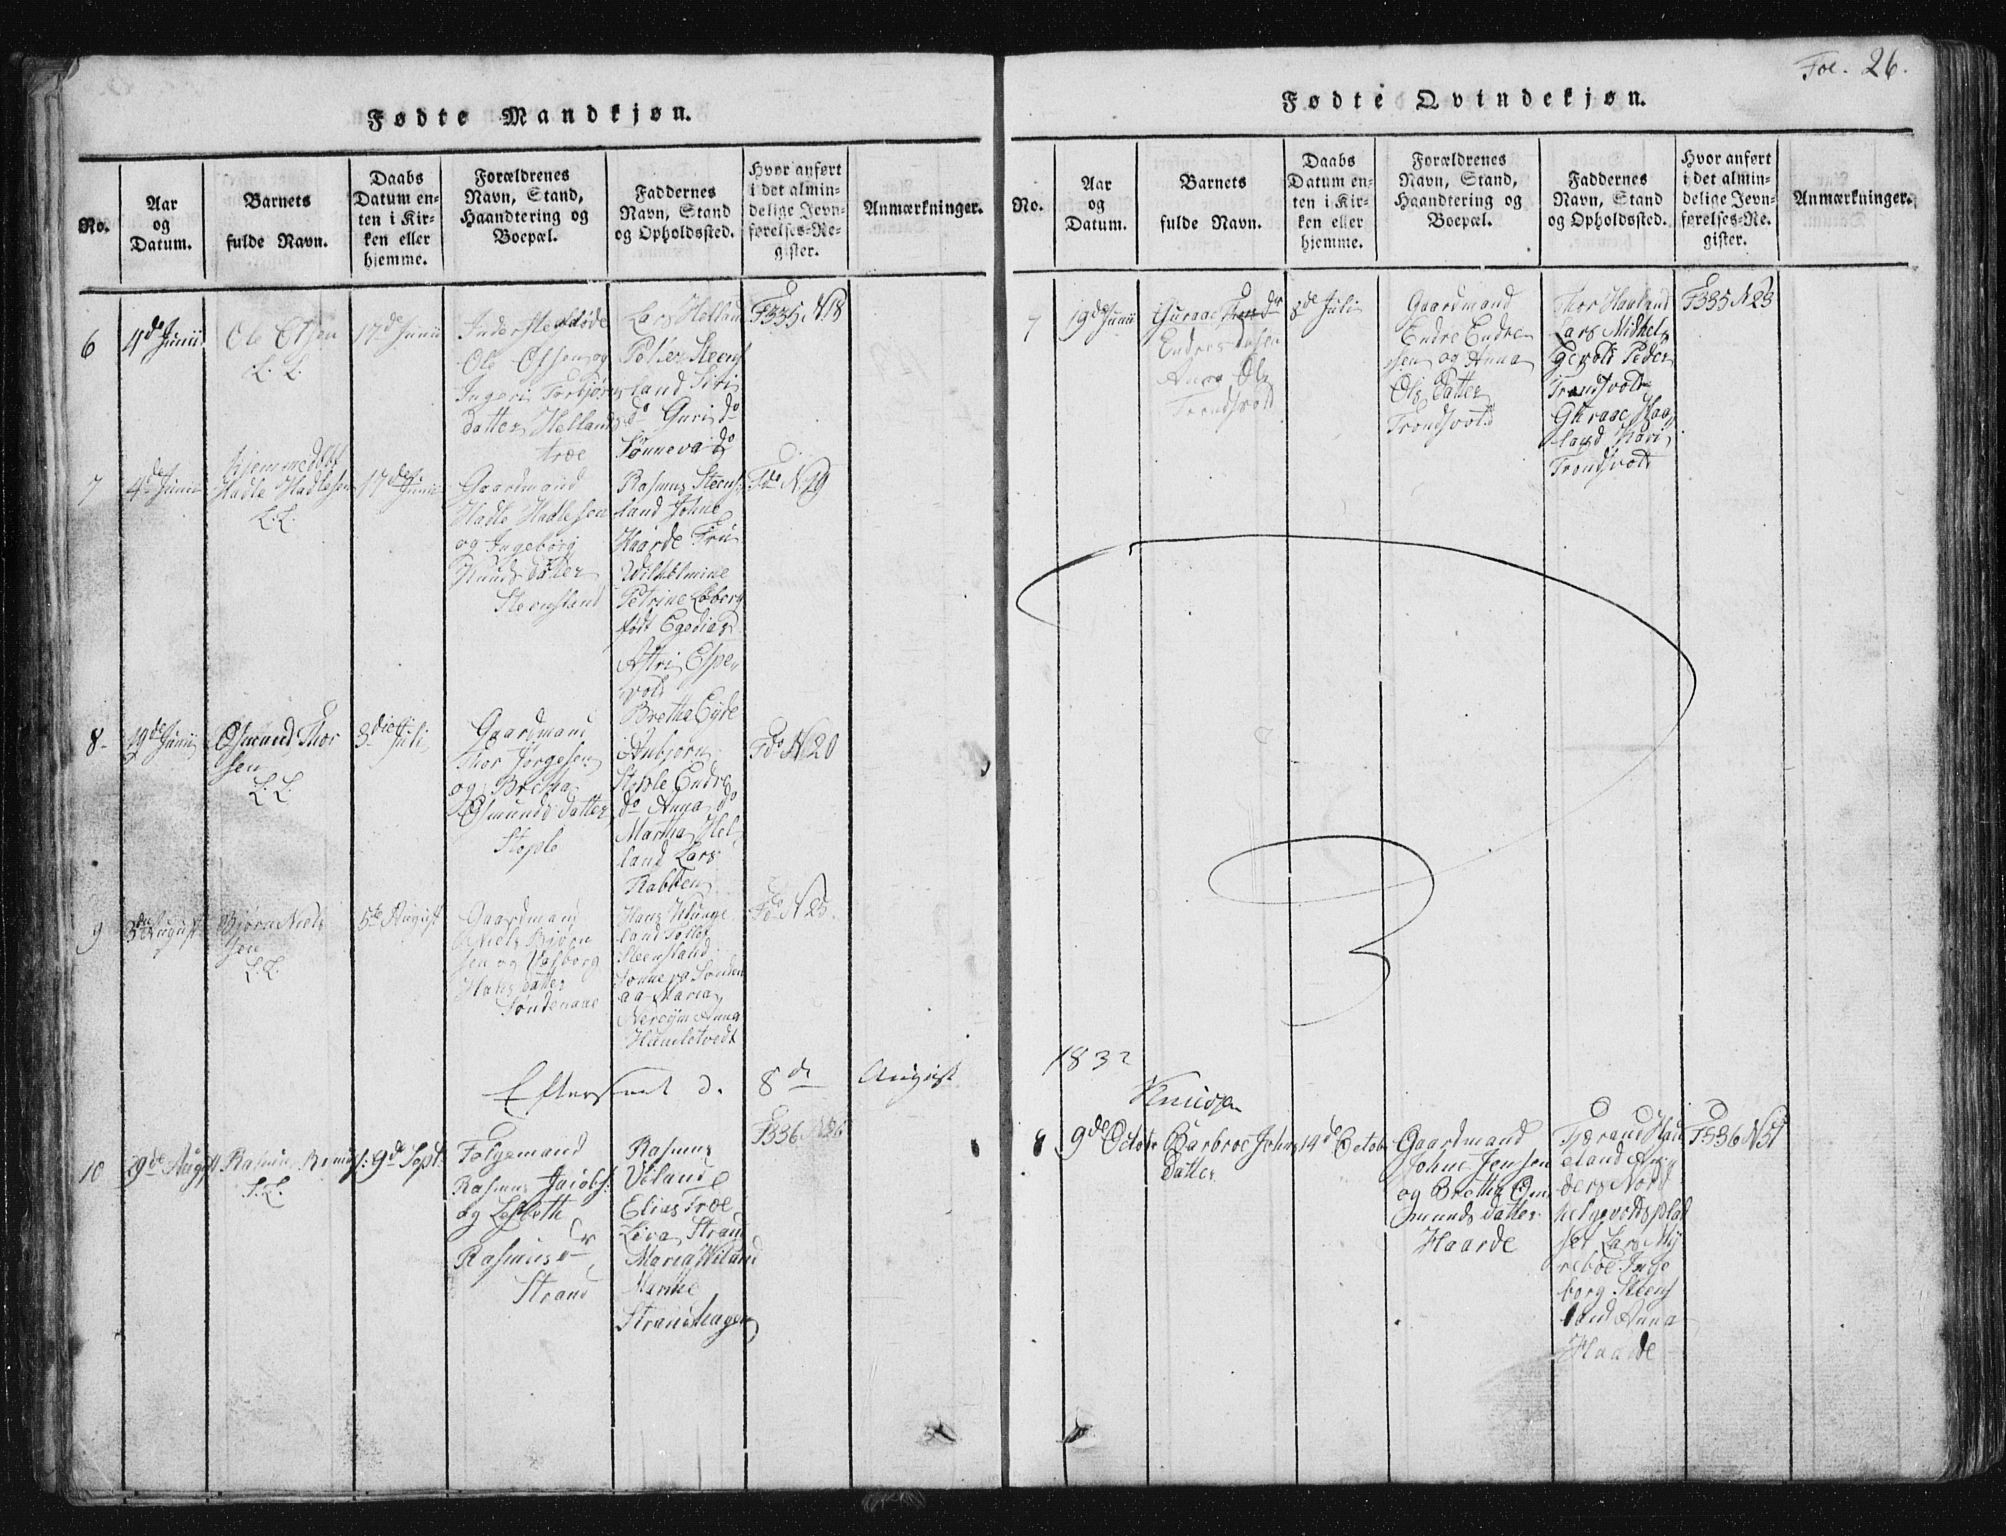 Fol. 26.
Fødte Mandkjøn.
No.
Aar
og
Datum.
Barnets
fulde Navn.
Daabs
Datum en-
ten i Kir-
ken eller
hjemme.
Forældrenes
Navn, Stand,
Haandtering og
Boepæl.
Faddernes
Navn, Stand
og Opholdssted.
Hvor anført
i det almin-
delige Jevn-
førelses-Re-
gister.
Anmærkninger.
6
4de Junii
Ole Olsen
L. L.
17de Junii
Ole Olsen og
Ingeri Torbjørns
datter Hellands
træe
Lars Helland
Peder Steens
land Siti
do Guri do
Sønneva do
F335 N18
7
4de Junii
Hjemmedøbt
Hadle Hadlesen
L. L.
17de Junii
Gaardmand
Hadle Hadlesen
og Ingeborg
Knuds datter
Steensland
Rasmus Steens
land Johne
Haarde Fru
Wilhelmine
Petrine Løberg
født Egedias
Astri Espe
vold
Bretha Eyde
Fdo N.19
8.
19de Junii
Osmund Thor
sen
L. L.
3die Juli
Gaardmand
Thor Jørgesen
og Bretha
Osmunds datter
Stople
Anbjørn
Stople Endre
do Anna do
Martha Hel
land Lars
Rabben
Fdo N 20
9
3die August
Bjørn Niels
sen
L. L.
5te August
Gaardmand
Niels Bjørn
sen og Valborg
Hans datter
Søndenaae
Hans Klunge
land Tollef
Steensland
Sønneva Sønden
aa Maria
Nereim Anna
Humletvedt
Fdo N 25.
Efterseet d. 8de August
10
29de August
Rasmus Rasmuss:
L. L.
9de Sept.
Følgemand
Rasmus Jacobs:
og Lisbeth
Rasmus dr
Strand
Rasmus
Viland
Elias Træe
Liva Strand
Maria Wiland
Marthe
Strandhagen
F336 N26
Fødte Qvindekjøn.
No.
Aar
og
Datum.
Barnets
fulde Navn.
Daabs
Datum en-
ten i Kir-
ken eller
hjemme.
Forældrenes
Navn, Stand,
Haandtering og
Boepæl.
Faddernes
Navn, Stand
og Opholdssted.
Hvor anført
i det almin-
delige Jevn-
førelses-Re-
gister.
Anmærkninger.
7
19de Junii
Guraae
Trondsvold
8de Juli
Gaardmand
Endre Endre
sen og Anna
Ols datter
Trondsvold
Thor Haaland
Lars Midhel
Gevold Peder
Trondsvold
Guraae Haa
land Kari
Trondsvold
F335 N 23
1832
Knudsen
8
9de Octobr
Barbroe Johns
datter
14de Octobr
Gaardmand
Johne Jensen
og Bretha Os
munds datter
Haarde
Tjerand Had
eland An
ders Nord
helgevolds plad
set Lars My
reboe Inge
borg Steens
land Anna
Haarde
F336 N31